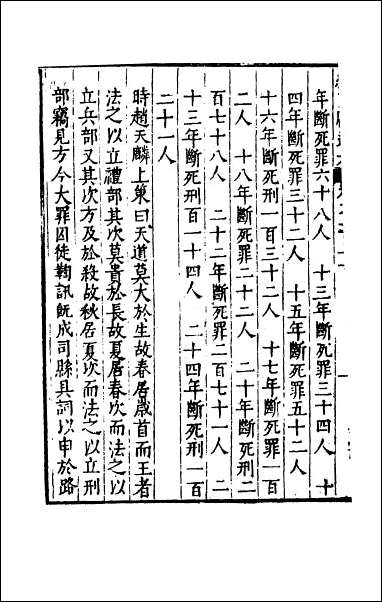 年斷死罪六十八人　十三年斷死罪三十四人　十
四年斷死罪三十二人　十五年斷死罪五十二人
十六年斷死刑一百三十二人　十七年斷死罪一百
二人　十八年斷死罪二十二人　二十年斷死刑二
百七十八人　二十二年斷死罪二百七十一人　二
十三年斷死刑百一十四人　二十四年斷死刑一百
二十一人
時趙天麟上策曰天道莫大於生故春居歲首而王者
法之以立禮部其次莫貴於長故夏居春次而法之以
立兵部又其次方及於殺故秋居夏次而法之以立刑
部竊見方今大罪囚徒鞫訊旣成司縣具詞以申於路